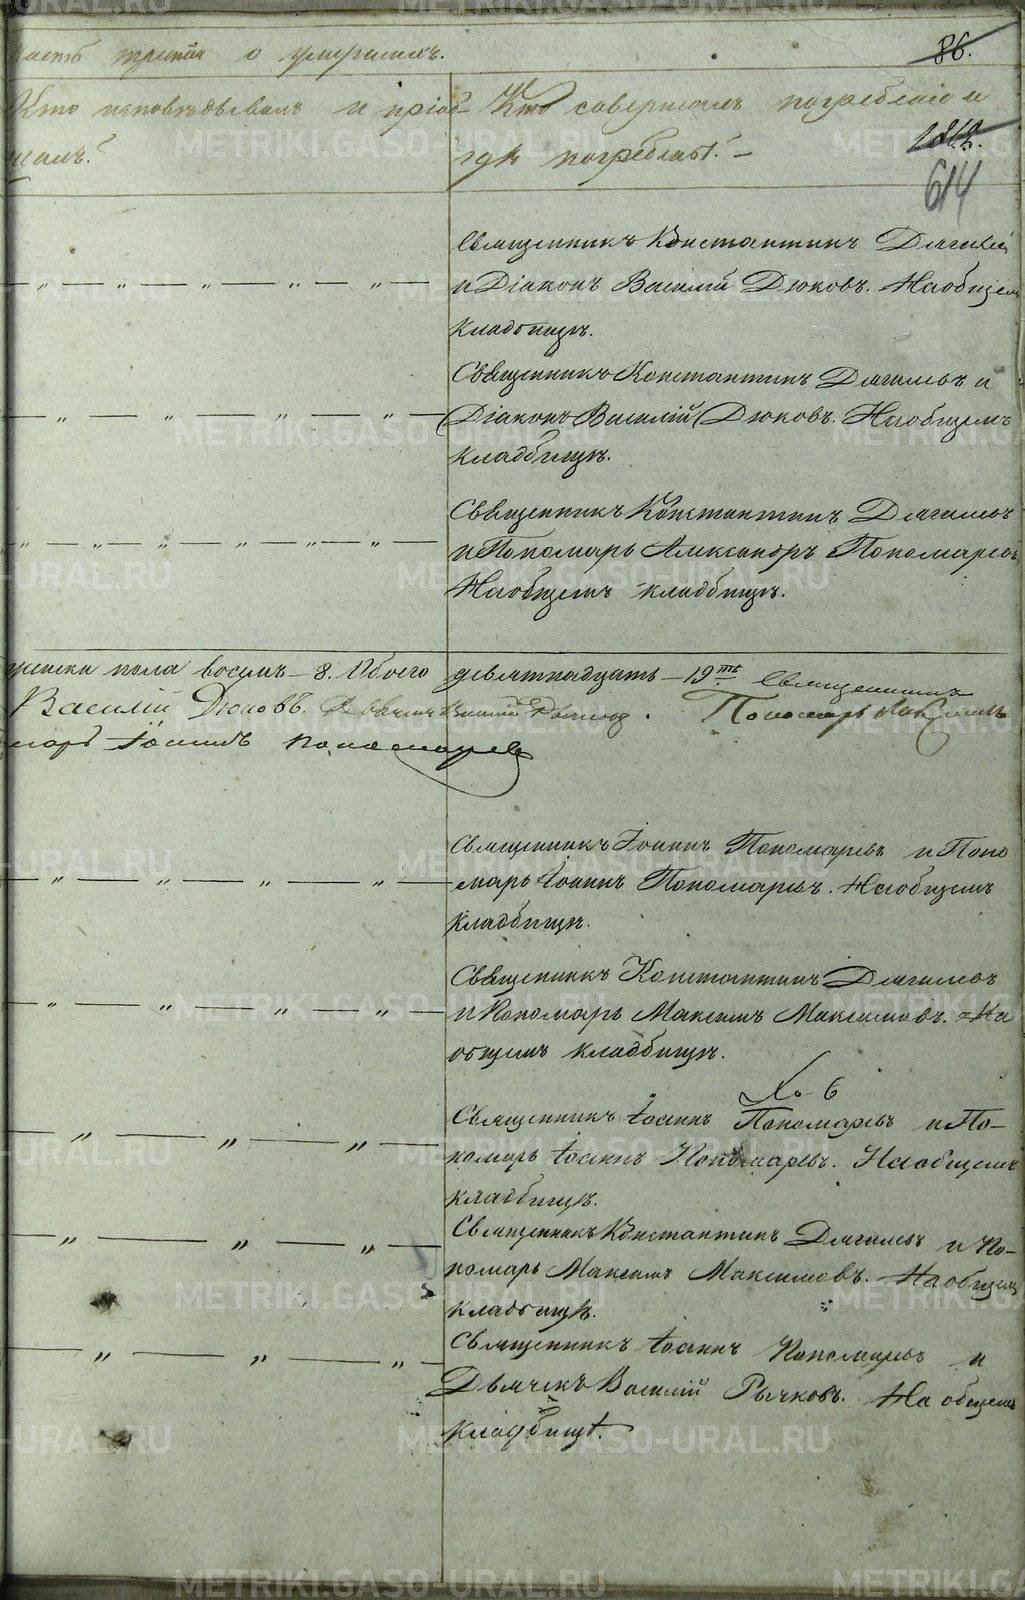 часть третія о умершихъ.
86.
Кто исповѣдывалъ и пріоб-
щалъ?
Кто совершалъ погребеніе и
гдѣ погребены?
614
Священникъ Константинъ Дягилевъ
и Діаконъ Василій Дюковъ. На общемъ
кладбищѣ.
Священникъ Константинъ Дягилевъ и
Діаконъ Василій Дюковъ. На общемъ
кладбищѣ.
Священникъ Константинъ Дягилевъ
и Пономарь Александръ Пономаревъ
На общемъ кладбищѣ.
женска пола восемь – 8. Обоего девятнадцать – 19 Священникъ
Василій Дюковъ. Дьячекъ Пономарь Максимъ
марь Іоаннъ Пономаревъ
Священникъ Іоаннъ Пономаревъ и Поно
марь Іоаннъ Пономаревъ. На общемъ
кладбищѣ.
Священникъ Константинъ Дягилевъ
и Пономарь Максимъ Максимовъ. На
общемъ кладбищѣ.
6
Священникъ Іоаннъ Пономаревъ и По-
номарь Іоаннъ Пономаревъ. На общемъ
кладбищѣ.
Священникъ Константинъ Дягилевъ и По-
номарь Максимъ Максимовъ. На общемъ
кладбищѣ.
Священникъ Іоаннъ Пономаревъ и
Дьячекъ Василій Рычковъ. На общемъ
кладбищѣ.
METRIKI.GASO-URAL.RU